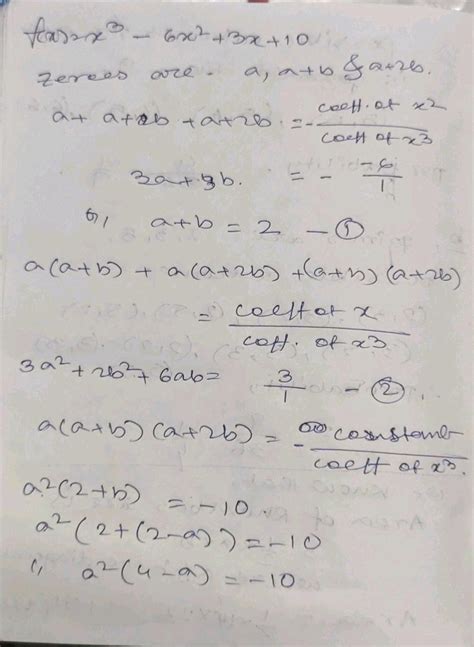 f(x) = x³ - 6x² + 3x + 10
zeroes are. a, a+b & a+2b.
a + a+b + a+2b = - coeff. of x² / coeff of x³
3a + 3b. = - -6/1
or, a+b = 2 - ①
a(a+b) + a(a+2b) + (a+b) (a+2b)
= coeff of x / coff. of x³
3a² + 2b² + 6ab = 3/1 - ②.
a(a+b) (a+2b) = - constant / coeff of x³.
a²(2+b) = -10.
a²(2+(2-a)) = -10
a²(4-a) = -10